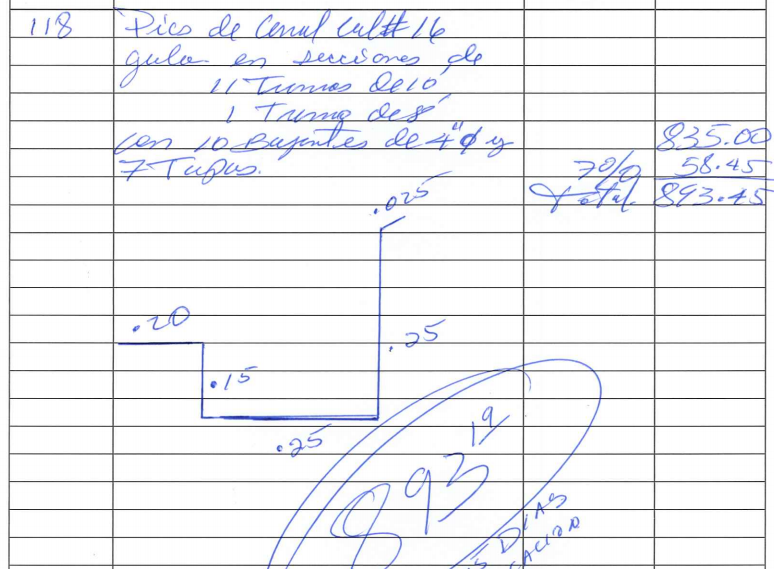 118 Pies de Canal Cal#16
galv en secciones de
11 Tramos de 10'
1 Tramo de 8'
con 10 Bajantes de 4"ϕ y 835.00
7 Tapas. 7% 58.45
Total 893.45
.025
.20
.25
.15
.25
893 19
DIAS